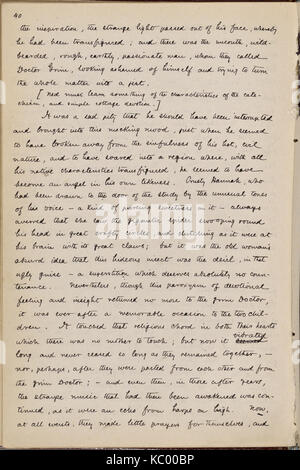 40
the inspiration, the strange light passed out of his face, whereby
he had been transfigured; and there was the uncouth, wild-
bearded, rough, earthy, passionate man, whom they called
Doctor Grim, looking ashamed of himself and trying to turn
the whole matter into a jest.
[Ned must learn something of the characteristics of the cate-
chism, and simple cottage devotion.]
It was a sad pity that he should have been interrupted
and brought into this mocking mood, just when he seemed
to have broken away from the sinfulness of his hot, evil
nature, and to have soared into a region where, with all
his native characteristics transfigured, he seemed to have
become an angel in his own likeness. Crusty Hannah, who
had been drawn to the door of the study by the unusual tones
of his voice - a kind of piercing sweetness in it - always
averred that she saw the gigantic spider swooping round
his head in great crafty circles, and clutching as it were at
his brain with its great claws; but it was the old woman's
absurd idea that this hideous insect was the devil, in that
ugly guise - a superstition which deserves absolutely no coun-
tenance. Nevertheless, though this paroxysm of devotional
feeling and insight returned no more to the grim Doctor,
it was ever after a memorable occasion to the two chil-
dren. It touched that religious chord in both their hearts
which there was no mother to touch; but now it vibrated
long and never ceased so long as they remained together, -
nor, perhaps, after they were parted from each other and from
the grim Doctor; - and even then, in those after years,
the strange music that had then been awakened was con-
tinued, as it were an echo from harps on high. Now,
at all events, they made little prayers for themselves, and
alamy stock photo
KC00BP